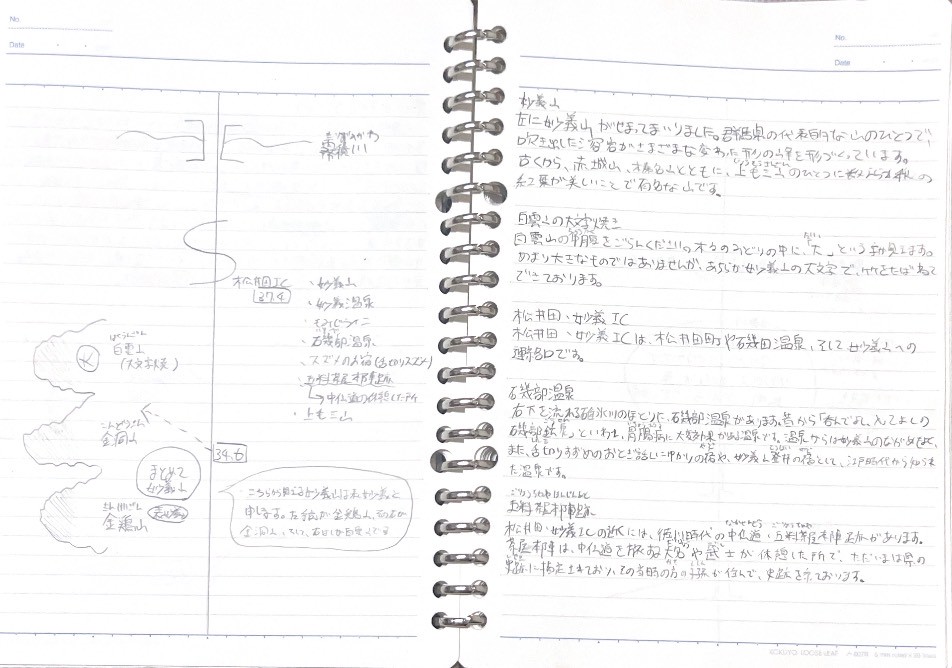 No.
Date
松井田IC
37.4
・妙義山
・妙義温泉
・磯部温泉
・スズメのお宿(舌切りスズメ)
・五料茶屋本陣跡
→中仙道の休憩した所
・上毛三山
はくうんざん
白雲山
(大文字焼)
大
こんどうさん
金洞山
34.6
まとめて
妙義山
金鶏山
こちらから見える妙義山は表妙義と
申します。左手が金鶏山、
金洞山、そして、右は白雲山で
No.
Date
妙義山
左に妙義山がせまってまいりました。群馬県の代表的な山のひとつで、
吹き出した溶岩がさまざまな変わった形の峰を形づくっています。
じょうもうさんざん
古くから、赤城山、榛名山とともに、上毛三山のひとつに数えられ、秋の
紅葉が美しいことで有名な山です。
白雲山の大文字焼き
白雲山の中腹をごらんください。木々のみどりの中に、「大」という字が見えます。
あまり大きなものではありませんが、あちらが妙義山の大文字で、竹をたばねて
できております。
松井田・妙義IC
松井田・妙義ICは、松井田町や磯部温泉、そして妙義山への
連絡口です。
磯部温泉
右下を流れる碓氷川のほとりに、磯部温泉があります。昔から「呑んでよし、入ってよしの
磯部鉱泉」といわれ、胃腸病に大変効果がある温泉です。温泉からは妙義山のながめもよく、
また、舌切りすずめのおとぎ話にゆかりの宿や、妙義山登拝の宿として、江戸時代から知られ
た温泉です。
ごりょうちゃやほんじんあと
五料茶屋本陣跡
松井田・妙義ICの近くには、徳川時代の中仙道・五料茶屋本陣跡があります。
茶屋本陣は、中仙道を旅する大名や武士が休憩した所で、ただいまは県の
史跡に指定されており、その当時の方の子孫が住んで、史跡を守っております。
KOKUYO LOOSE-LEAF